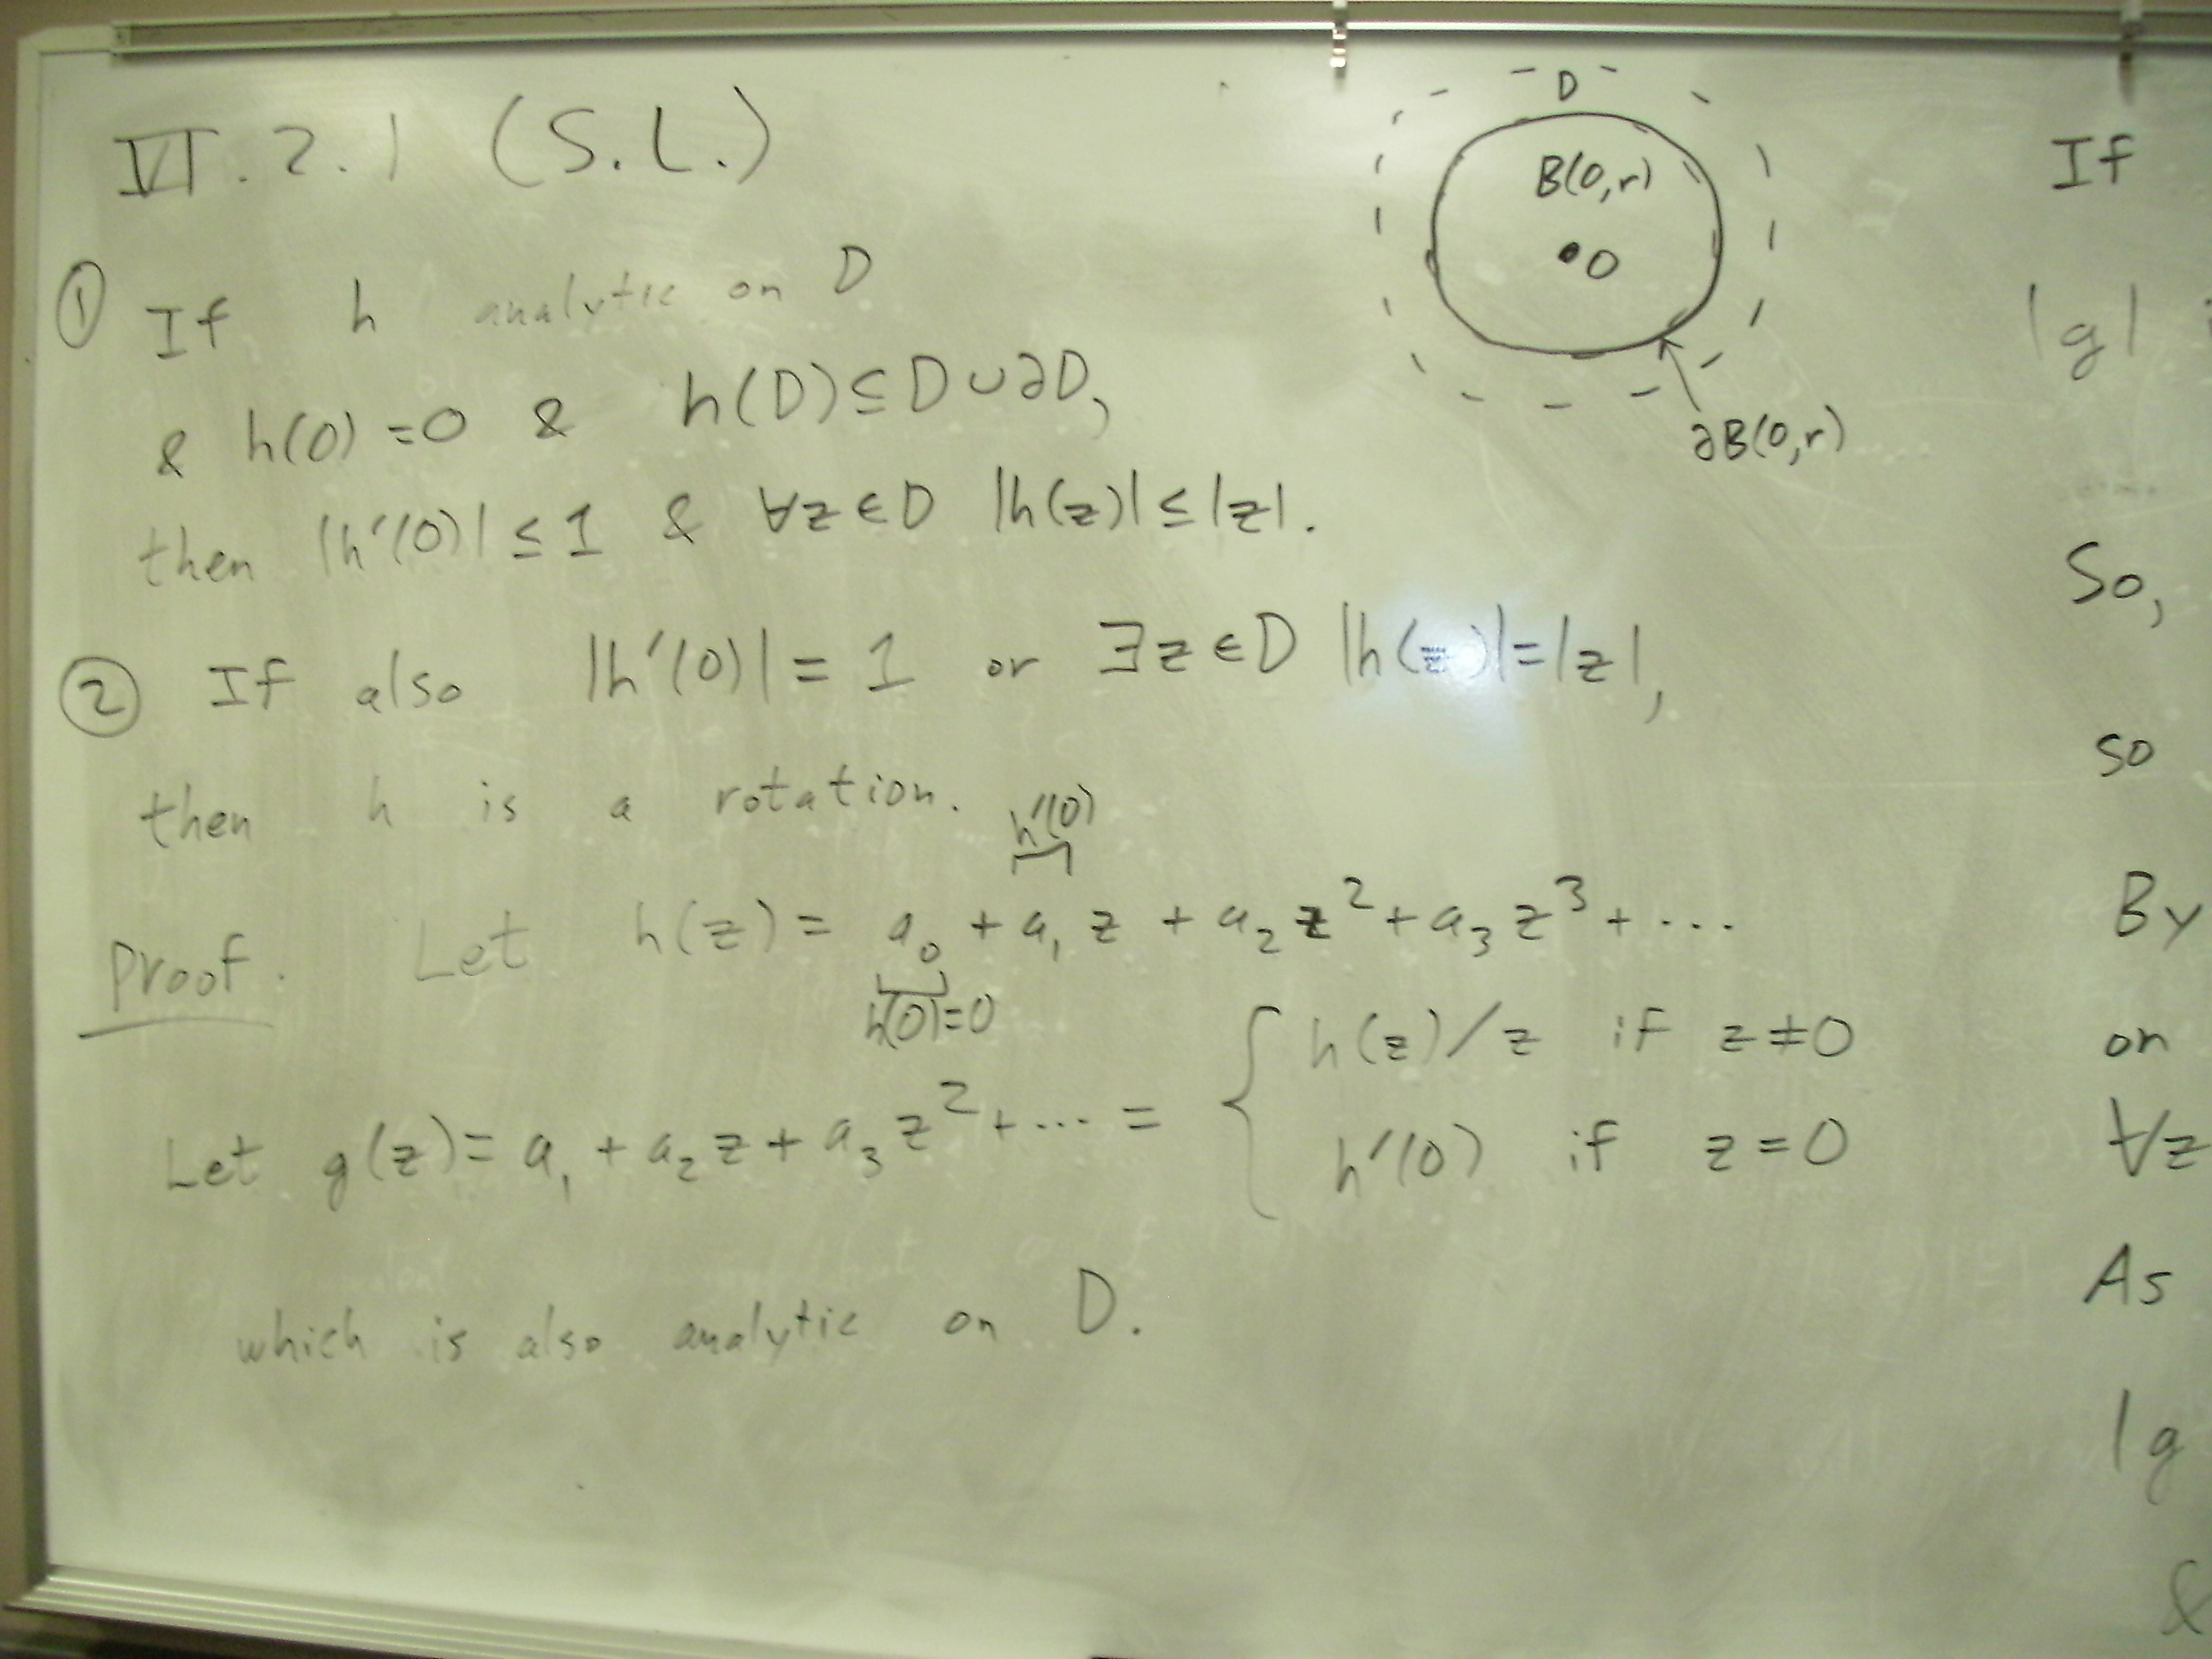 VI.2.1 (S.L.)
① If h analytic on D
& h(0)=0 & h(D)⊆D∪∂D,
then |h′(0)| ≤ 1 & ∀z∈D |h(z)|≤|z|.
② If also |h′(0)| = 1 or ∃z∈D |h(z)|=|z|,
then h is a rotation.
h′(0)
Proof. Let h(z) = a₀ + a₁z + a₂z² + a₃z³ + ...
h(0)=0
Let g(z) = a₁ + a₂z + a₃z² + ... = { h(z)/z if z≠0
h′(0) if z=0
which is also analytic on D.
D
B(0,r)
0
∂B(0,r)
If
|g|
So,
so
By
on
∀z
As
|g
&